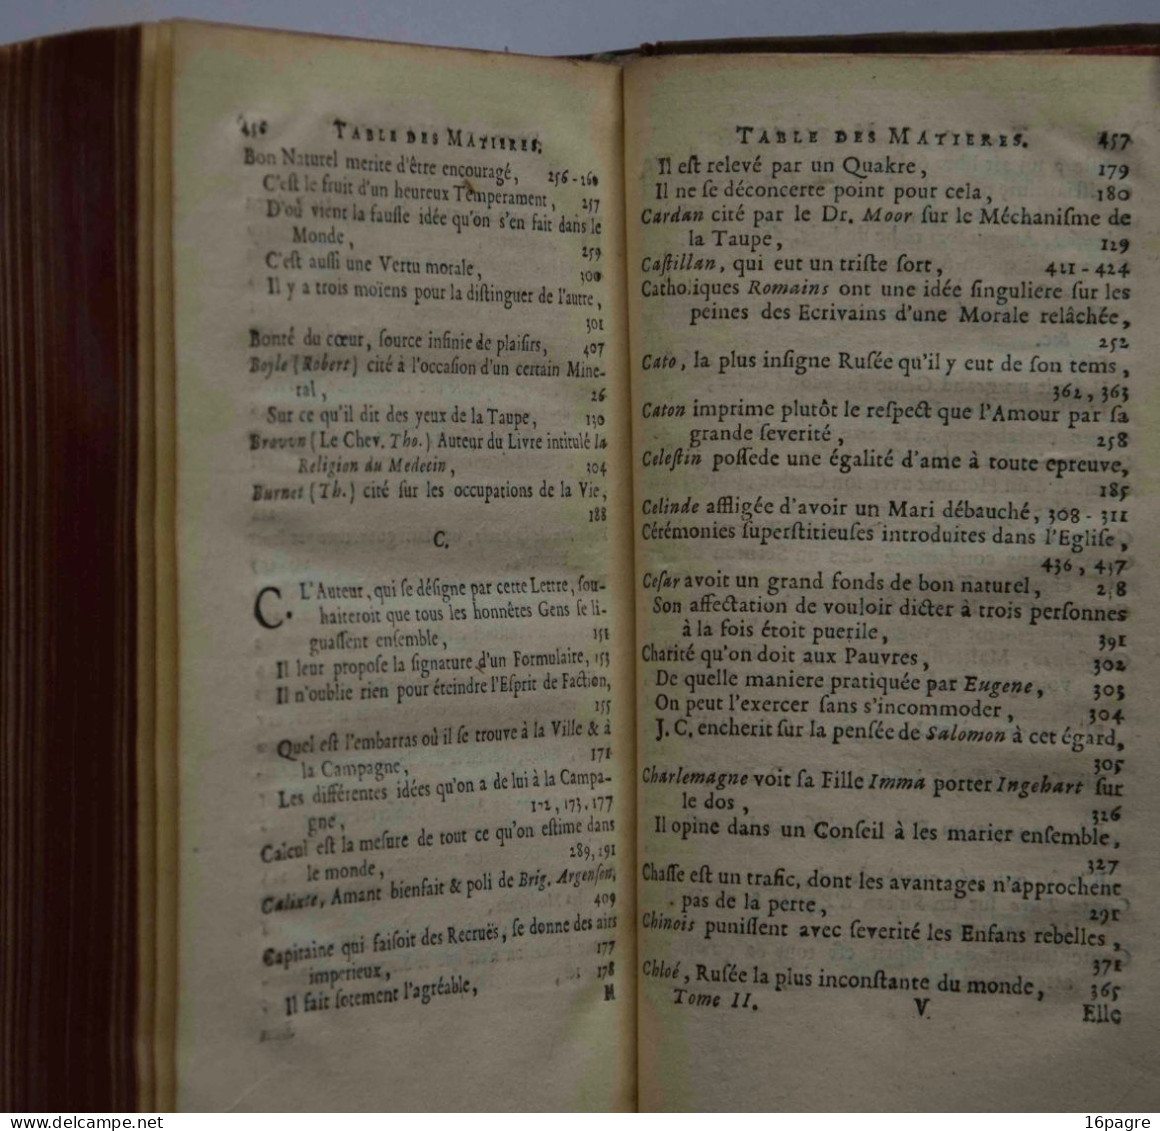 456 TABLE DES MATIERES.
Bon Naturel merite d'être encouragé, 256-260
C'est le fruit d'un heureux Temperament, 257
D'où vient la fausse idée qu'on s'en fait dans le
Monde, 259
C'est aussi une Vertu morale, 300
Il y a trois moïens pour la distinguer de l'autre,
301
Bonté du cœur, source infinie de plaisirs, 407
Boyle (Robert) cité à l'occasion d'un certain Mine-
ral, 26
Sur ce qu'il dit des yeux de la Taupe, 130
Brovvn (Le Chev. Tho.) Auteur du Livre intitulé la
Religion du Medecin, 304
Burnet (Th.) cité sur les occupations de la Vie,
188
C.
C. L'Auteur, qui se désigne par cette Lettre, sou-
haiteroit que tous les honnêtes Gens se li-
guassent ensemble, 151
Il leur propose la signature d'un Formulaire, 153
Il n'oublie rien pour éteindre l'Esprit de Faction,
155
Quel est l'embarras où il se trouve à la Ville & à
la Campagne, 171
Les différentes idées qu'on a de lui à la Campa-
gne, 172, 173, 177
Calcul est la mesure de tout ce qu'on estime dans
le monde, 289, 191
Calixte, Amant bienfait & poli de Brig. Argenson,
409
Capitaine qui faisoit des Recruës, se donne des airs
imperieux, 177
Il fait sotement l'agréable, 178
Il
TABLE DES MATIERES. 457
Il est relevé par un Quakre, 179
Il ne se déconcerte point pour cela, 180
Cardan cité par le Dr. Moor sur le Méchanisme de
la Taupe, 129
Castillan, qui eut un triste sort, 421-424
Catholiques Romains ont une idée singuliere sur les
peines des Ecrivains d'une Morale relâchée,
252
Cato, la plus insigne Rusée qu'il y eut de son tems,
362, 363
Caton imprime plutôt le respect que l'Amour par sa
grande severité, 258
Celestin possede une égalité d'ame à toute epreuve,
185
Celinde affligée d'avoir un Mari débauché, 308-311
Cérémonies superstitieuses introduites dans l'Eglise,
436, 437
Cesar avoit un grand fonds de bon naturel, 2,8
Son affectation de vouloir dicter à trois personnes
à la fois étoit puerile, 391
Charité qu'on doit aux Pauvres, 302
De quelle maniere pratiquée par Eugene, 303
On peut l'exercer sans s'incommoder, 304
J. C. encherit sur la pensée de Salomon à cet égard,
305
Charlemagne voit sa Fille Imma porter Ingehart sur
le dos, 326
Il opine dans un Conseil à les marier ensemble,
327
Chasse est un trafic, dont les avantages n'approchent
pas de la perte, 291
Chinois punissent avec severité les Enfans rebelles,
371
Chloé, Rusée la plus inconstante du monde, 365
Tome II. V. Elle
16pagre